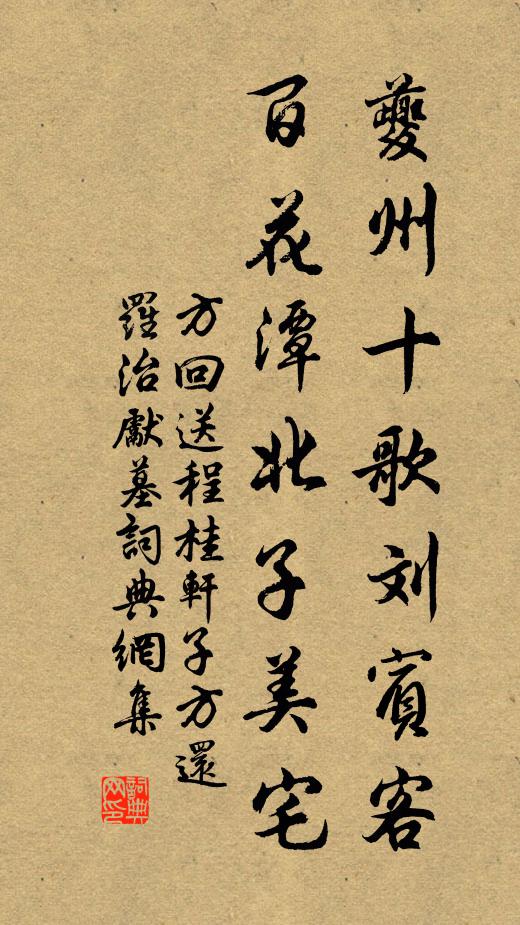 夔州十歌刘賓客
百花潭北子美宅
方回送程桂軒子方還
羅治獻墓詞典網集
詞典网印